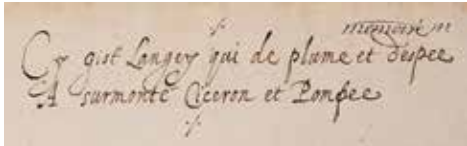 memoire m
Cy gist Langey qui de plume et d'espee
A surmonté Ciceron et Pompee